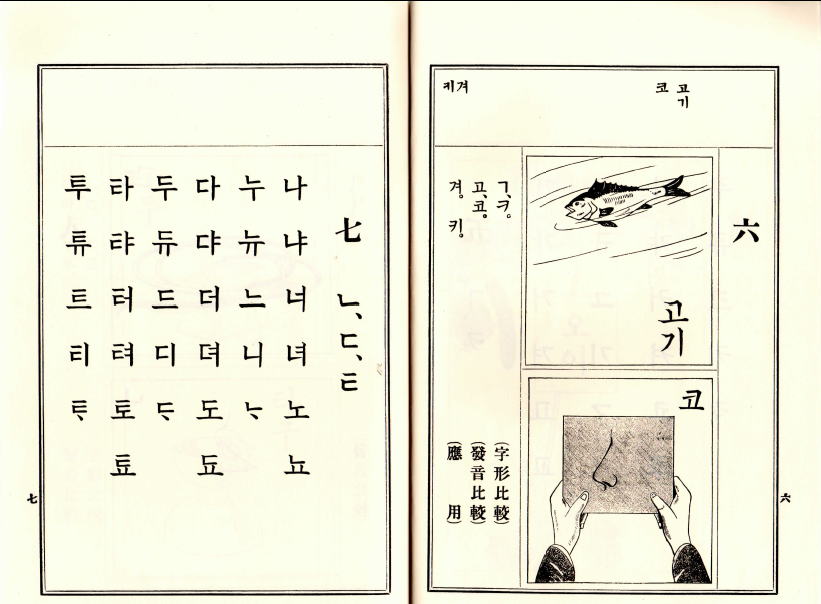 고기
코
겨
키
六
고기
코
ㄱ、ㅋ。 (字形比較)
고、코。 (發音比較)
겨。 키。 (應用)
六
七 ㄴ、ㄷ、ㅌ
나 냐 너 녀 노 뇨
누 뉴 느 니 ᄂᆞ
다 댜 더 뎌 도 됴
두 듀 드 디 ᄃᆞ
타 탸 터 텨 토 툐
투 튜 트 티 ᄐᆞ
七